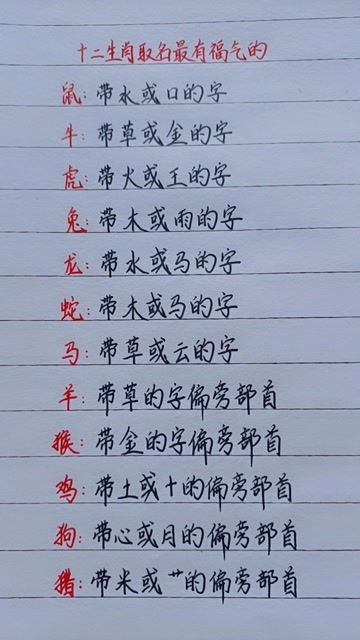 十二生肖取名最有福气的
鼠：带水或口的字
牛：带草或金的字
虎：带火或王的字
兔：带木或雨的字
龙：带水或马的字
蛇：带木或马的字
马：带草或云的字
羊：带草的字偏旁部首
猴：带金的字偏旁部首
鸡：带土或十的偏旁部首
狗：带心或月的偏旁部首
猪：带米或艹的偏旁部首